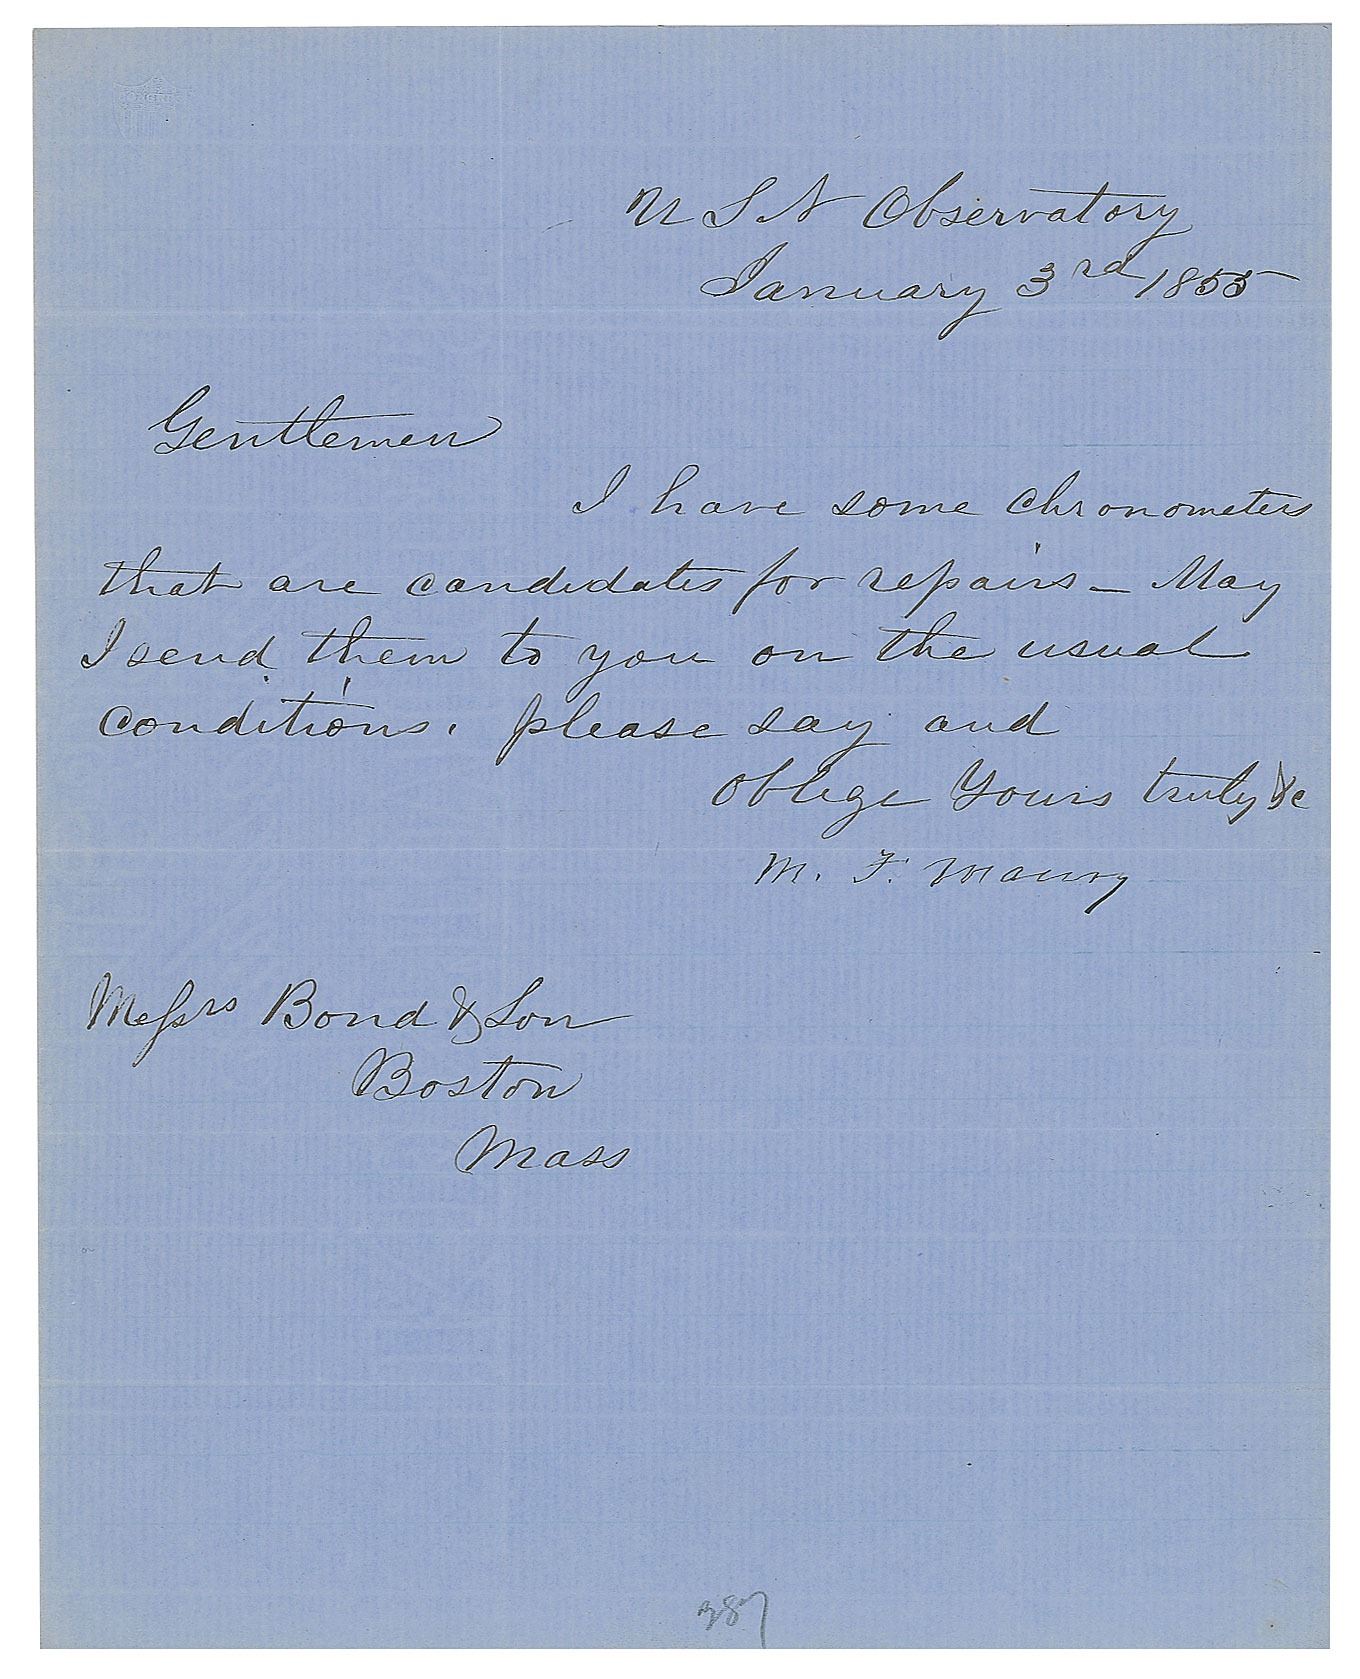 U S N Observatory
January 3rd 1855
Gentlemen
I have some chronometers
that are candidates for repairs – May
I send them to you on the usual
conditions. please say and
oblige Yours truly &c
M. F. Maury
Messrs Bond & Son
Boston
Mass
387